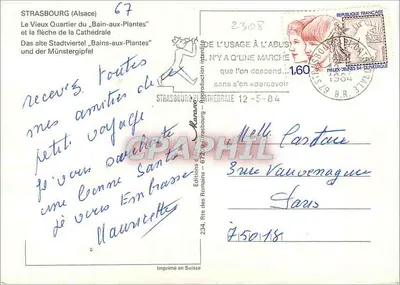 STRASBOURG (Alsace)
Le Vieux Quartier du „Bain-aux-Plantes"
et la flèche de la Cathédrale
Das alte Stadtviertel „Bains-aux-Plantes"
und der Münstergipfel
67
2308
DE L'USAGE À L'ABUS
N'Y A QU'UNE MARCHE
que l'on descend...
sans s'en apercevoir
STRASBOURG CATHEDRALE 12-5-84
1,60
REPUBLIQUE FRANÇAISE
PHILEX-JEUNES 84 DUNKERQUE
67 STRASBOURG CATHEDRALE
1984
B.R.
recevez toutes
mes amitiés de ce
petit voyage
Je vous souhaite
une bonne Santé
Je vous Embrasse
Mauricette
Melle Castan
3 rue Vauvenargues
Paris
75018
234, Rte des Romains - 672
Reproduction interdite
Imprimé en Suisse
CPAPHIL.COM